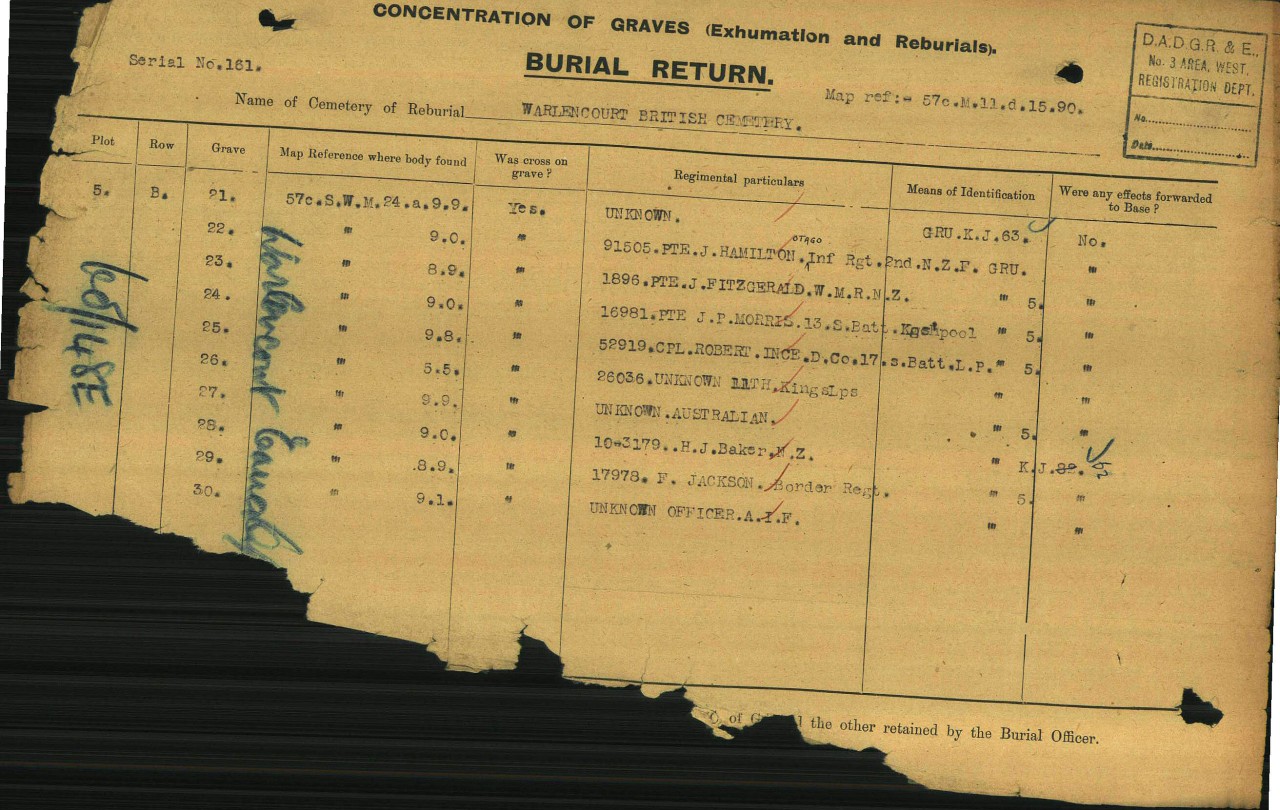 CONCENTRATION OF GRAVES (Exhumation and Reburials).
BURIAL RETURN.
Serial No.161.
Map ref:- 57c.M.11.d.15.90.
D.A.D.G.R. & E.,
No. 3 AREA, WEST.
REGISTRATION DEPT.
No.
Date
Name of Cemetery of Reburial WARLENCOURT BRITISH CEMETERY.
Plot Row Grave Map Reference where body found Was cross on grave? Regimental particulars Means of Identification Were any effects forwarded to Base?
5. B. 21. 57c.S.W.M.24.a.9.9. Yes. UNKNOWN. GRU.K.J.63. No.
22. " 9.0. " 91505.PTE.J.HAMILTON. OTAGO Inf Rgt.2nd.N.Z.F. GRU. "
23. " 8.9. " 1896.PTE.J.FITZGERALD.W.M.R.N.Z. " 5. "
24. " 9.0. " 16981.PTE J.P.MORRIS.13.S.Batt. " 5. "
25. " 9.8. " 52919.CPL.ROBERT.INCE.D.Co.17.s.Batt.L.P. " 5. "
26. " 5.5. " 26036.UNKNOWN 11TH.KingsLps " "
27. " 9.9. " UNKNOWN.AUSTRALIAN. " 5. "
28. " 9.0. " 10-3179..H.J.Baker.N.Z. " K.J.82. 62
29. " 8.9. " 17978. F. JACKSON. Border Regt. " 5. "
30. " 9.1. " UNKNOWN OFFICER.A.I.F. " "
60/148E
Warlencourt
of G
the other retained by the Burial Officer.